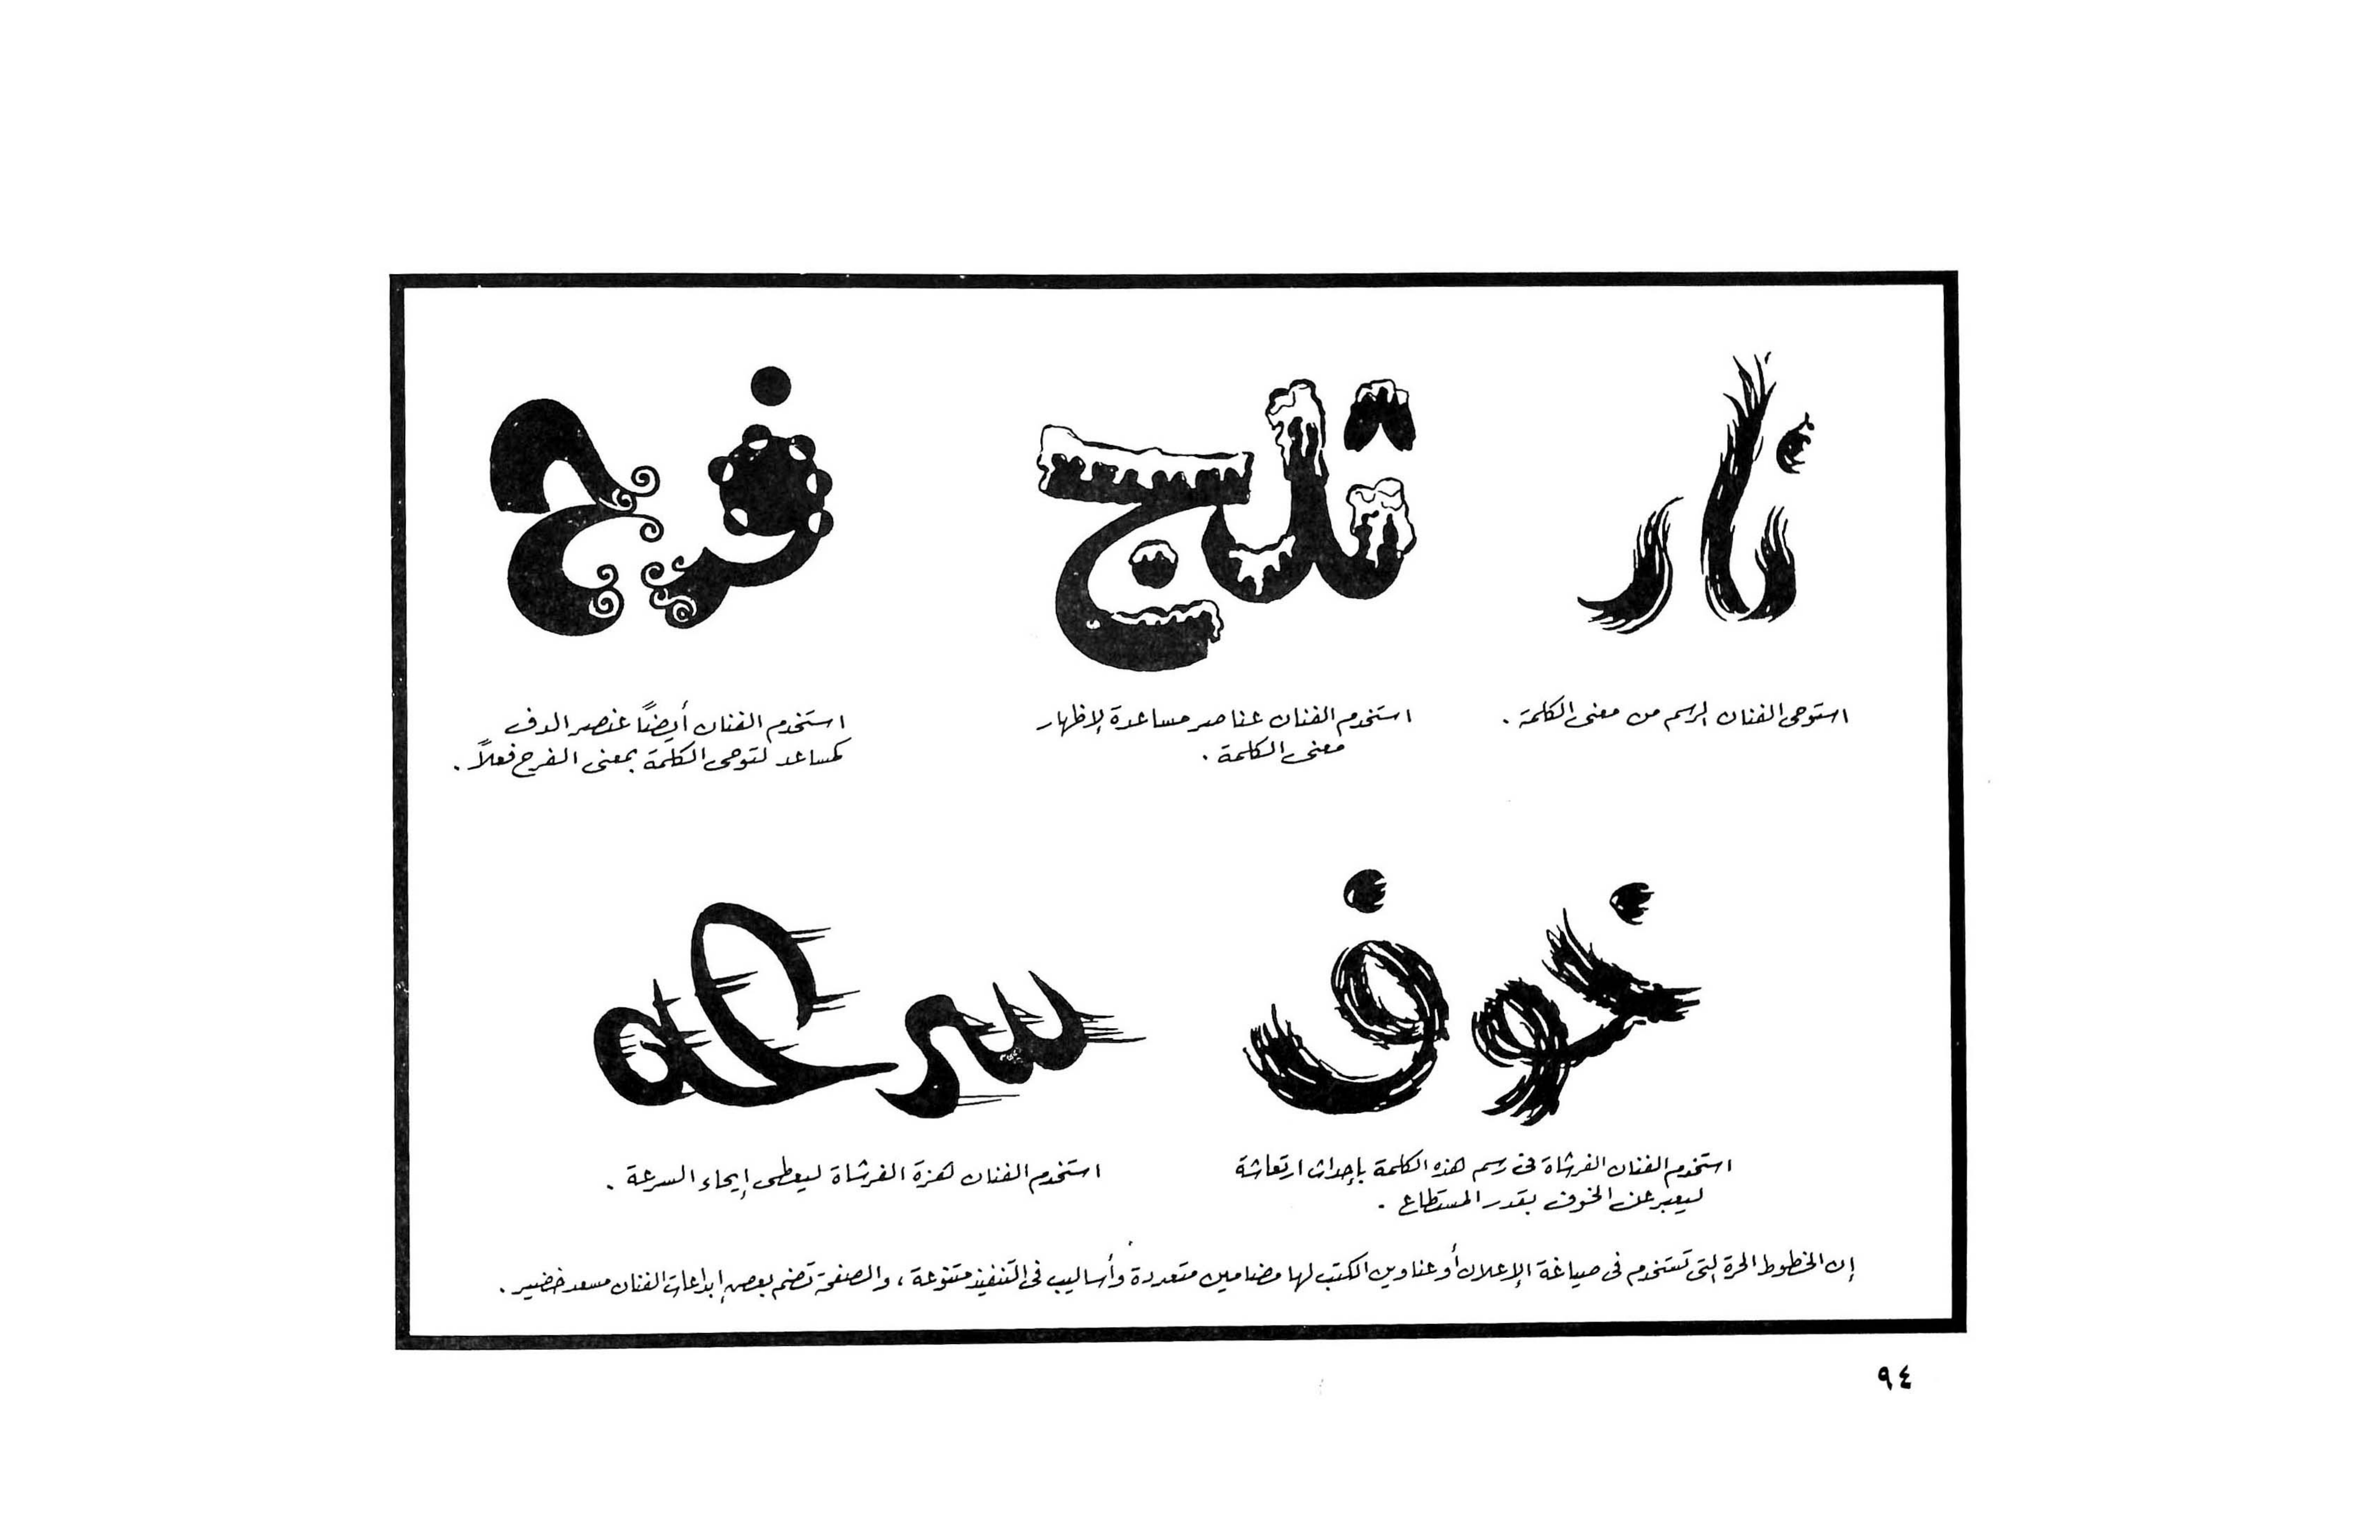 نار
ثلج
فرح
استوحى الفنان الرسم من معنى الكلمة .
استخدم الفنان عناصر مساعدة لإظهار
معنى الكلمة .
استخدم الفنان أيضاً عنصر الدف
كمساعد لتوحى الكلمة بمعنى الفرح فعلاً .
خوف
سرعة
استخدم الفنان الفرشاة فى رسم هذه الكلمة بإحداث ارتعاشة
ليعبر عن الخوف بقدر المستطاع .
استخدم الفنان هزة الفرشاة ليعطى إيحاء السرعة .
إن الخطوط الحرة التى تستخدم فى صياغة الإعلان أو عناوين الكتب لها مضامين متعددة وأساليب فى التنفيذ متنوعة ، والصفحة تضم بعض إبداعات الفنان مسعد خضير .
٩٤